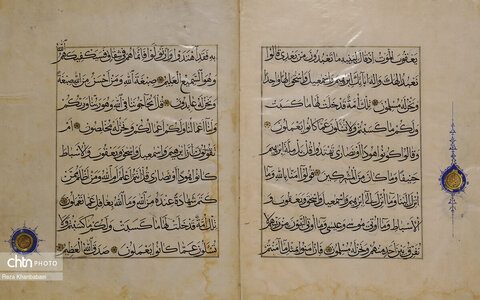 يعقوب الموت اذ قال لبنيه ما تعبدون من بعدي قالوا
نعبد الهك واله ابائك ابرهيم واسمعيل واسحق الها واحدا
ونحن له مسلمون تلك امة قد خلت لها ما كسبت
ولكم ما كسبتم ولا تسئلون عما كانوا يعملون
وقالوا كونوا هودا او نصارى تهتدوا قل بل ملة ابرهيم
حنيفا وما كان من المشركين قولوا امنا بالله وما
انزل الينا وما انزل الى ابرهيم واسمعيل واسحق ويعقوب و
الاسباط وما اوتي موسى وعيسى وما اوتي النبيون من ربهم لا
نفرق بين احد منهم ونحن له مسلمون فان امنوا بمثل ما امنتم
به فقد اهتدوا وان تولوا فانما هم في شقاق فسيكفيكهم الله
وهو السميع العليم صبغة الله ومن احسن من الله صبغة
ونحن له عابدون قل اتحاجوننا في الله وهو ربنا وربكم
ولنا اعمالنا ولكم اعمالكم ونحن له مخلصون ام
تقولون ان ابرهيم واسمعيل واسحق ويعقوب والاسباط
كانوا هودا او نصارى قل ءانتم اعلم ام الله ومن اظلم ممن
كتم شهادة عنده من الله وما الله بغافل عما تعملون
تلك امة قد خلت لها ما كسبت ولكم ما كسبتم ولا
تسئلون عما كانوا يعملون صدق الله العظيم
chtn PHOTO
Reza Khanbabaei